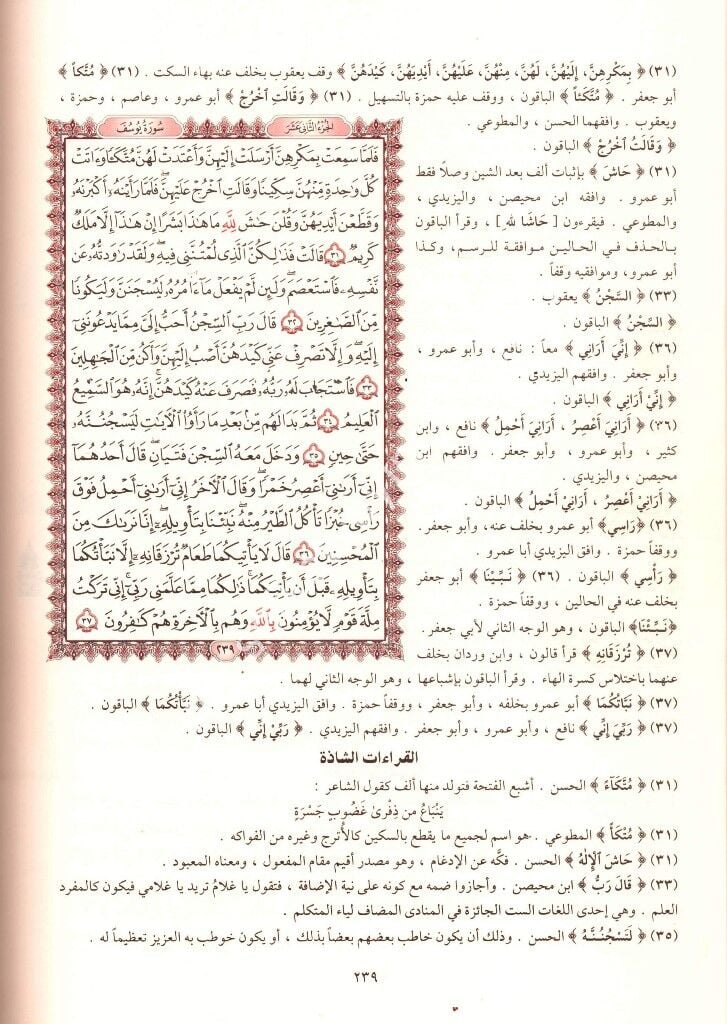 (٣١) ﴿ بِمَكْرِهِنَّ، إِلَيْهُنَّ، لَهُنَّ، مِنْهُنَّ، عَلَيْهُنَّ، أَيْدِيَهُنَّ، كَيْدَهُنَّ ﴾ وقف يعقوب بخلف عنه بهاء السكت . (٣١) ﴿ مُتَّكاً ﴾
أبو جعفر . ﴿ مُتَّكَئاً ﴾ الباقون ، ووقف عليه حمزة بالتسهيل . (٣١) ﴿ وَقَالَتِ اخْرُجْ ﴾ أبو عمرو ، وعاصم ، وحمزة ،
ويعقوب . وافقهما الحسن ، والمطوعي .
﴿ وَقَالَتُ اخْرُجْ ﴾ الباقون .
(٣١) ﴿ حَاشَ ﴾ بإثبات ألف بعد الشين وصلاً فقط
أبو عمرو . وافقه ابن محيصن ، واليزيدي ،
والمطوعي . فيقرءون [ حَاشَا لله ] ، وقرأ الباقون
بالحذف في الحالين موافقة للرسم، وكذا
أبو عمرو، وموافقيه وقفاً .
(٣٣) ﴿ السَّجْنُ ﴾ يعقوب .
﴿ السِّجْنُ ﴾ الباقون .
(٣٦) ﴿ إِنِّيَ أَرَانِي ﴾ معاً : نافع ، وأبو عمرو ،
وأبو جعفر . وافقهم اليزيدي .
﴿ إِنِّيْ أَرَانِي ﴾ الباقون .
(٣٦) ﴿ أَرَانِيَ أَعْصِرُ ، أَرَانِيَ أَحْمِلُ ﴾ نافع ، وابن
كثير ، وأبو عمرو ، وأبو جعفر . وافقهم ابن
محيصن ، واليزيدي .
﴿ أَرَانِيْ أَعْصِرُ ، أَرَانِيْ أَحْمِلُ ﴾ الباقون .
(٣٦) ﴿ رَاسِي ﴾ أبو عمرو بخلف عنه، وأبو جعفر .
ووقفاً حمزة . وافق اليزيدي أبا عمرو .
﴿ رَأْسِي ﴾ الباقون . (٣٦) ﴿ نَبِّيْنَا ﴾ أبو جعفر
بخلف عنه في الحالين ، ووقفاً حمزة .
﴿ نَبِّئْنَا ﴾ الباقون ، وهو الوجه الثاني لأبي جعفر .
(٣٧) ﴿ تُرْزَقَانِهِ ﴾ قرأ قالون ، وابن وردان بخلف
عنهما باختلاس كسرة الهاء . وقرأ الباقون بإشباعها ، وهو الوجه الثاني لهما .
(٣٧) ﴿ نَبَّاتُكُمَا ﴾ أبو عمرو بخلفه ، وأبو جعفر ، ووقفاً حمزة . وافق اليزيدي أبا عمرو . ﴿ نَبَّأْتُكُمَا ﴾ الباقون .
(٣٧) ﴿ رَبِّيَ إِنِّي ﴾ نافع ، وأبو عمرو ، وأبو جعفر . وافقهم اليزيدي . ﴿ رَبِّيْ إِنِّي ﴾ الباقون .
سُورَةُ يُوسُفَ
الجُزْءُ الثَّانِي عَشَرَ
فَلَمَّا سَمِعَتْ بِمَكْرِهِنَّ أَرْسَلَتْ إِلَيْهِنَّ وَأَعْتَدَتْ لَهُنَّ مُتَّكَـًٔا وَءَاتَتْ
كُلَّ وَٰحِدَةٍ مِّنْهُنَّ سِكِّينًا وَقَالَتِ ٱخْرُجْ عَلَيْهِنَّ ۖ فَلَمَّا رَأَيْنَهُۥٓ أَكْبَرْنَهُۥ
وَقَطَّعْنَ أَيْدِيَهُنَّ وَقُلْنَ حَـٰشَ لِلَّهِ مَا هَـٰذَا بَشَرًا إِنْ هَـٰذَآ إِلَّا مَلَكٌ
كَرِيمٌ ٣١ قَالَتْ فَذَٰلِكُنَّ ٱلَّذِى لُمْتُنَّنِى فِيهِ ۖ وَلَقَدْ رَٰوَدتُّهُۥ عَن
نَّفْسِهِۦ فَٱسْتَعْصَمَ ۖ وَلَئِن لَّمْ يَفْعَلْ مَآ ءَامُرُهُۥ لَيُسْجَنَنَّ وَلَيَكُونًا
مِّنَ ٱلصَّـٰغِرِينَ ٣٢ قَالَ رَبِّ ٱلسِّجْنُ أَحَبُّ إِلَىَّ مِمَّا يَدْعُونَنِىٓ
إِلَيْهِ ۖ وَإِلَّا تَصْرِفْ عَنِّى كَيْدَهُنَّ أَصْبُ إِلَيْهِنَّ وَأَكُن مِّنَ ٱلْجَـٰهِلِينَ
٣٣ فَٱسْتَجَابَ لَهُۥ رَبُّهُۥ فَصَرَفَ عَنْهُ كَيْدَهُنَّ ۚ إِنَّهُۥ هُوَ ٱلسَّمِيعُ
ٱلْعَلِيمُ ٣٤ ثُمَّ بَدَا لَهُم مِّنۢ بَعْدِ مَا رَأَوُا۟ ٱلْـَٔايَـٰتِ لَيَسْجُنُنَّهُۥ
حَتَّىٰ حِينٍ ٣٥ وَدَخَلَ مَعَهُ ٱلسِّجْنَ فَتَيَانِ ۖ قَالَ أَحَدُهُمَآ
إِنِّىٓ أَرَىٰنِىٓ أَعْصِرُ خَمْرًا ۖ وَقَالَ ٱلْـَٔاخَرُ إِنِّىٓ أَرَىٰنِىٓ أَحْمِلُ فَوْقَ
رَأْسِى خُبْزًا تَأْكُلُ ٱلطَّيْرُ مِنْهُ ۖ نَبِّئْنَا بِتَأْوِيلِهِۦٓ ۖ إِنَّا نَرَىٰكَ مِنَ
ٱلْمُحْسِنِينَ ٣٦ قَالَ لَا يَأْتِيكُمَا طَعَامٌ تُرْزَقَانِهِۦٓ إِلَّا نَبَّأْتُكُمَا
بِتَأْوِيلِهِۦ قَبْلَ أَن يَأْتِيَكُمَا ۚ ذَٰلِكُمَا مِمَّا عَلَّمَنِى رَبِّىٓ ۚ إِنِّى تَرَكْتُ
مِلَّةَ قَوْمٍ لَّا يُؤْمِنُونَ بِٱللَّهِ وَهُم بِٱلْـَٔاخِرَةِ هُمْ كَـٰفِرُونَ ٣٧
٢٣٩
القراءات الشاذة
(٣١) ﴿ مُتَّكَآءً ﴾ الحسن . أشبع الفتحة فتولد منها ألف كقول الشاعر :
يَنْبَاعُ من ذِفْرىٰ غَضُوبٍ جَسْرَةٍ
(٣١) ﴿ مُتْكَأً ﴾ المطوعي . هو اسم لجميع ما يقطع بالسكين كالأُترج وغيره من الفواكه .
(٣١) ﴿ حَاشَ ٱلْإِلٰهُ ﴾ الحسن . فكَّه عن الإدغام ، وهو مصدر أقيم مقام المفعول ، ومعناه المعبود .
(٣٣) ﴿ قَالَ رَبُّ ﴾ ابن محيصن . وأجازوا ضمه مع كونه على نية الإضافة ، فتقول يا غلامُ تريد يا غلامي فيكون كالمفرد
العلم . وهي إحدى اللغات الست الجائزة في المنادى المضاف لياء المتكلم .
(٣٥) ﴿ لَتَسْجُنُنَّهُ ﴾ الحسن . وذلك أن يكون خاطب بعضهم بعضاً بذلك ، أو يكون خوطب به العزيز تعظيماً له .
٢٣٩